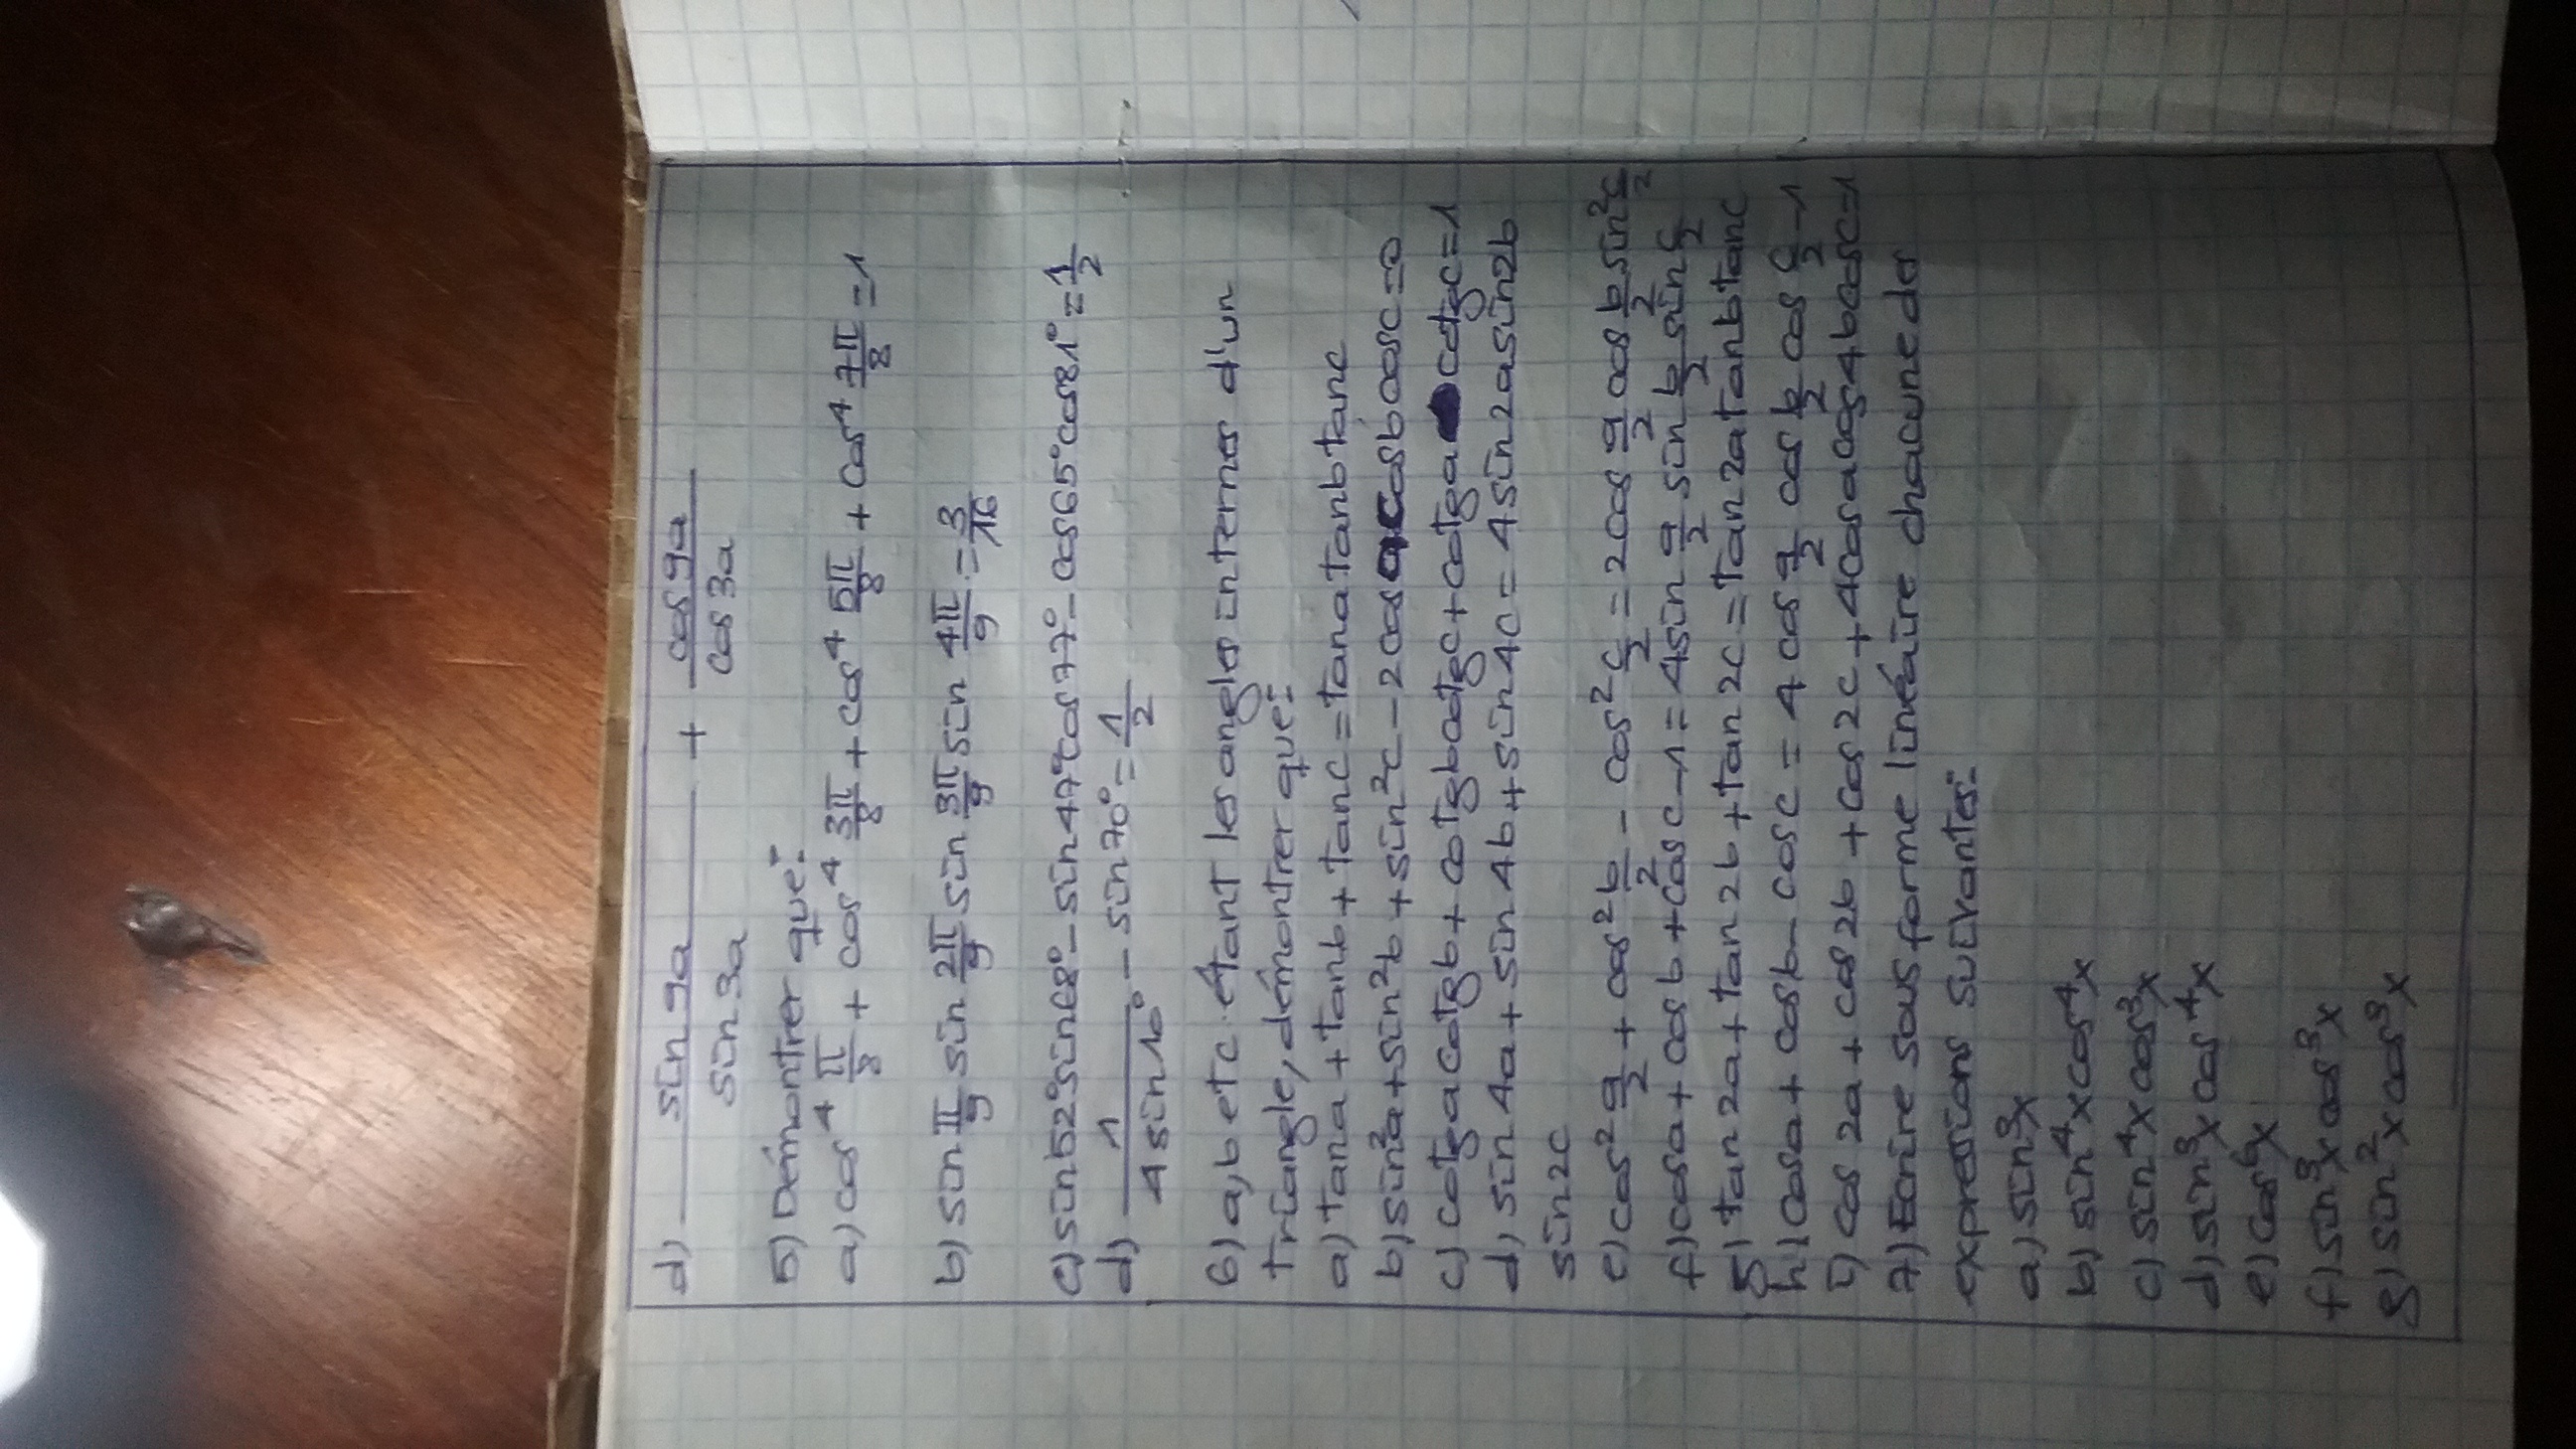 d) sin9a/sin3a + cos9a/cos3a
5) Démontrer que:
a) cos⁴ π/8 + cos⁴ 3π/8 + cos⁴ 5π/8 + cos⁴ 7π/8 = 1
b) sin π/9 sin 2π/9 sin 3π/9 sin 4π/9 = 3/16
c) sin52°sin68° - sin47°cos77° - cos65°cos81° = 1/2
d) 1/4sin10° - sin70° = 1/2
6) a, b et c étant les angles internes d'un
triangle, démontrer que:
a) tana + tanb + tanc = tana tanb tanc
b) sin²a + sin²b + sin²c - 2cosacosbcosc = 0
c) cotga cotgb + cotgbcotgc + cotga cotgc = 1
d) sin4a + sin4b + sin4c = 4sin2asin2b
sin2c
e) cos² a/2 + cos² b/2 - cos² c/2 = 2cos a/2 cos b/2 sin² c/2
f) cosa + cosb + cosc - 1 = 4sin a/2 sin b/2 sin c/2
g) tan2a + tan2b + tan2c = tan2atanbtanc
h) cosa + cosb - cosc = 4cos a/2 cos b/2 cos c/2 - 1
i) cos2a + cos2b + cos2c + 4cosacos4bcosc = 1
7) Ecrire sous forme linéaire chacune des
expressions suivantes:
a) sin³x
b) sin⁴xcos⁴x
c) sin⁴xcos³x
d) sin³xcos⁴x
e) cos⁶x
f) sin³xcos³x
g) sin²xcos³x